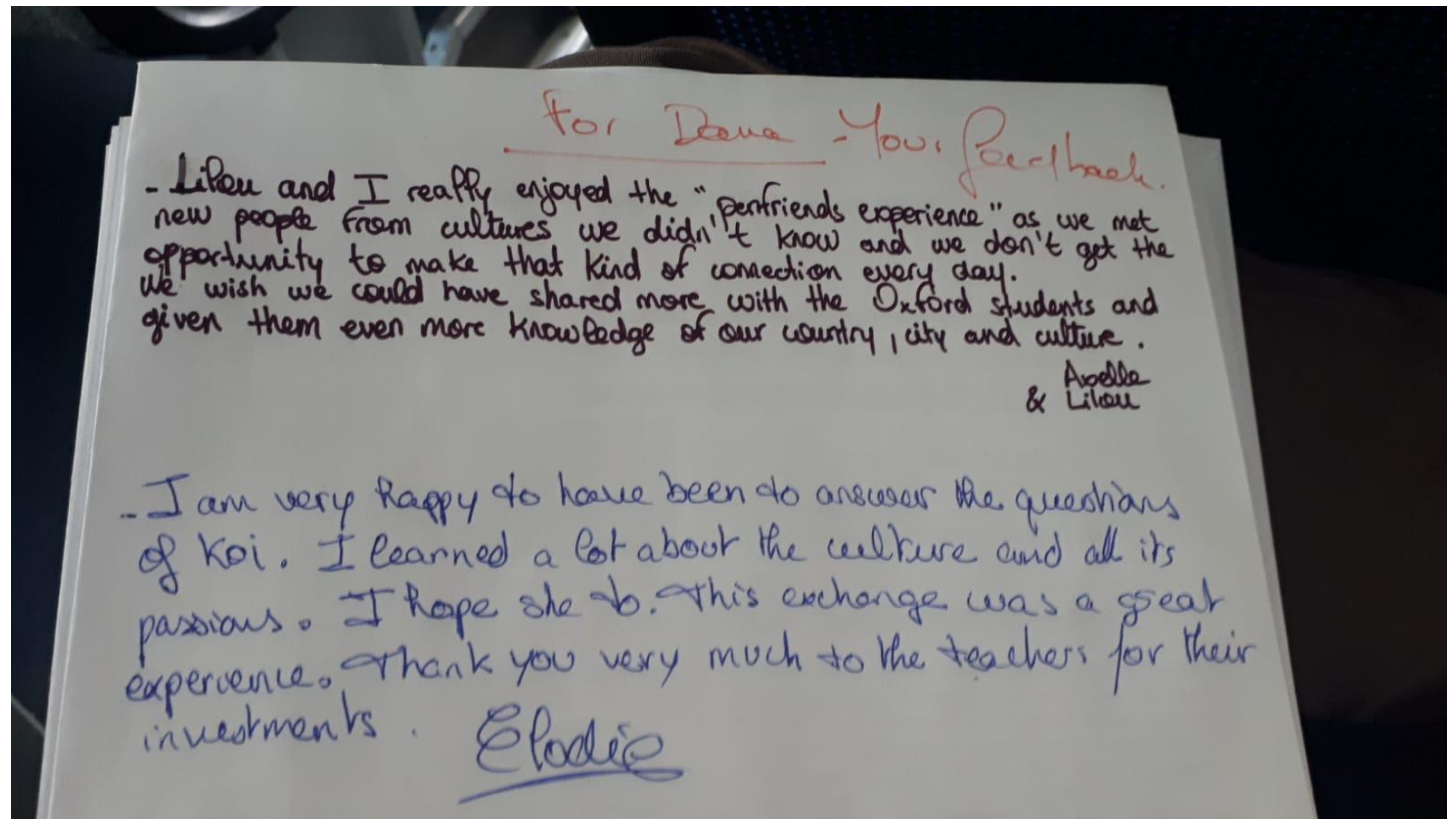 For Dana - Your feedback.
- Lilou and I really enjoyed the "penfriends experience" as we met
new people from cultures we didn't know and we don't get the
opportunity to make that kind of connection every day.
We wish we could have shared more with the Oxford students and
given them even more knowledge of our country, city and culture.
Axelle
& Lilou
- I am very happy to have been to answer the questions
of Koi. I learned a lot about the culture and all its
passions. I hope she to. This exchange was a great
experience. Thank you very much to the teachers for their
investments.
Elodie